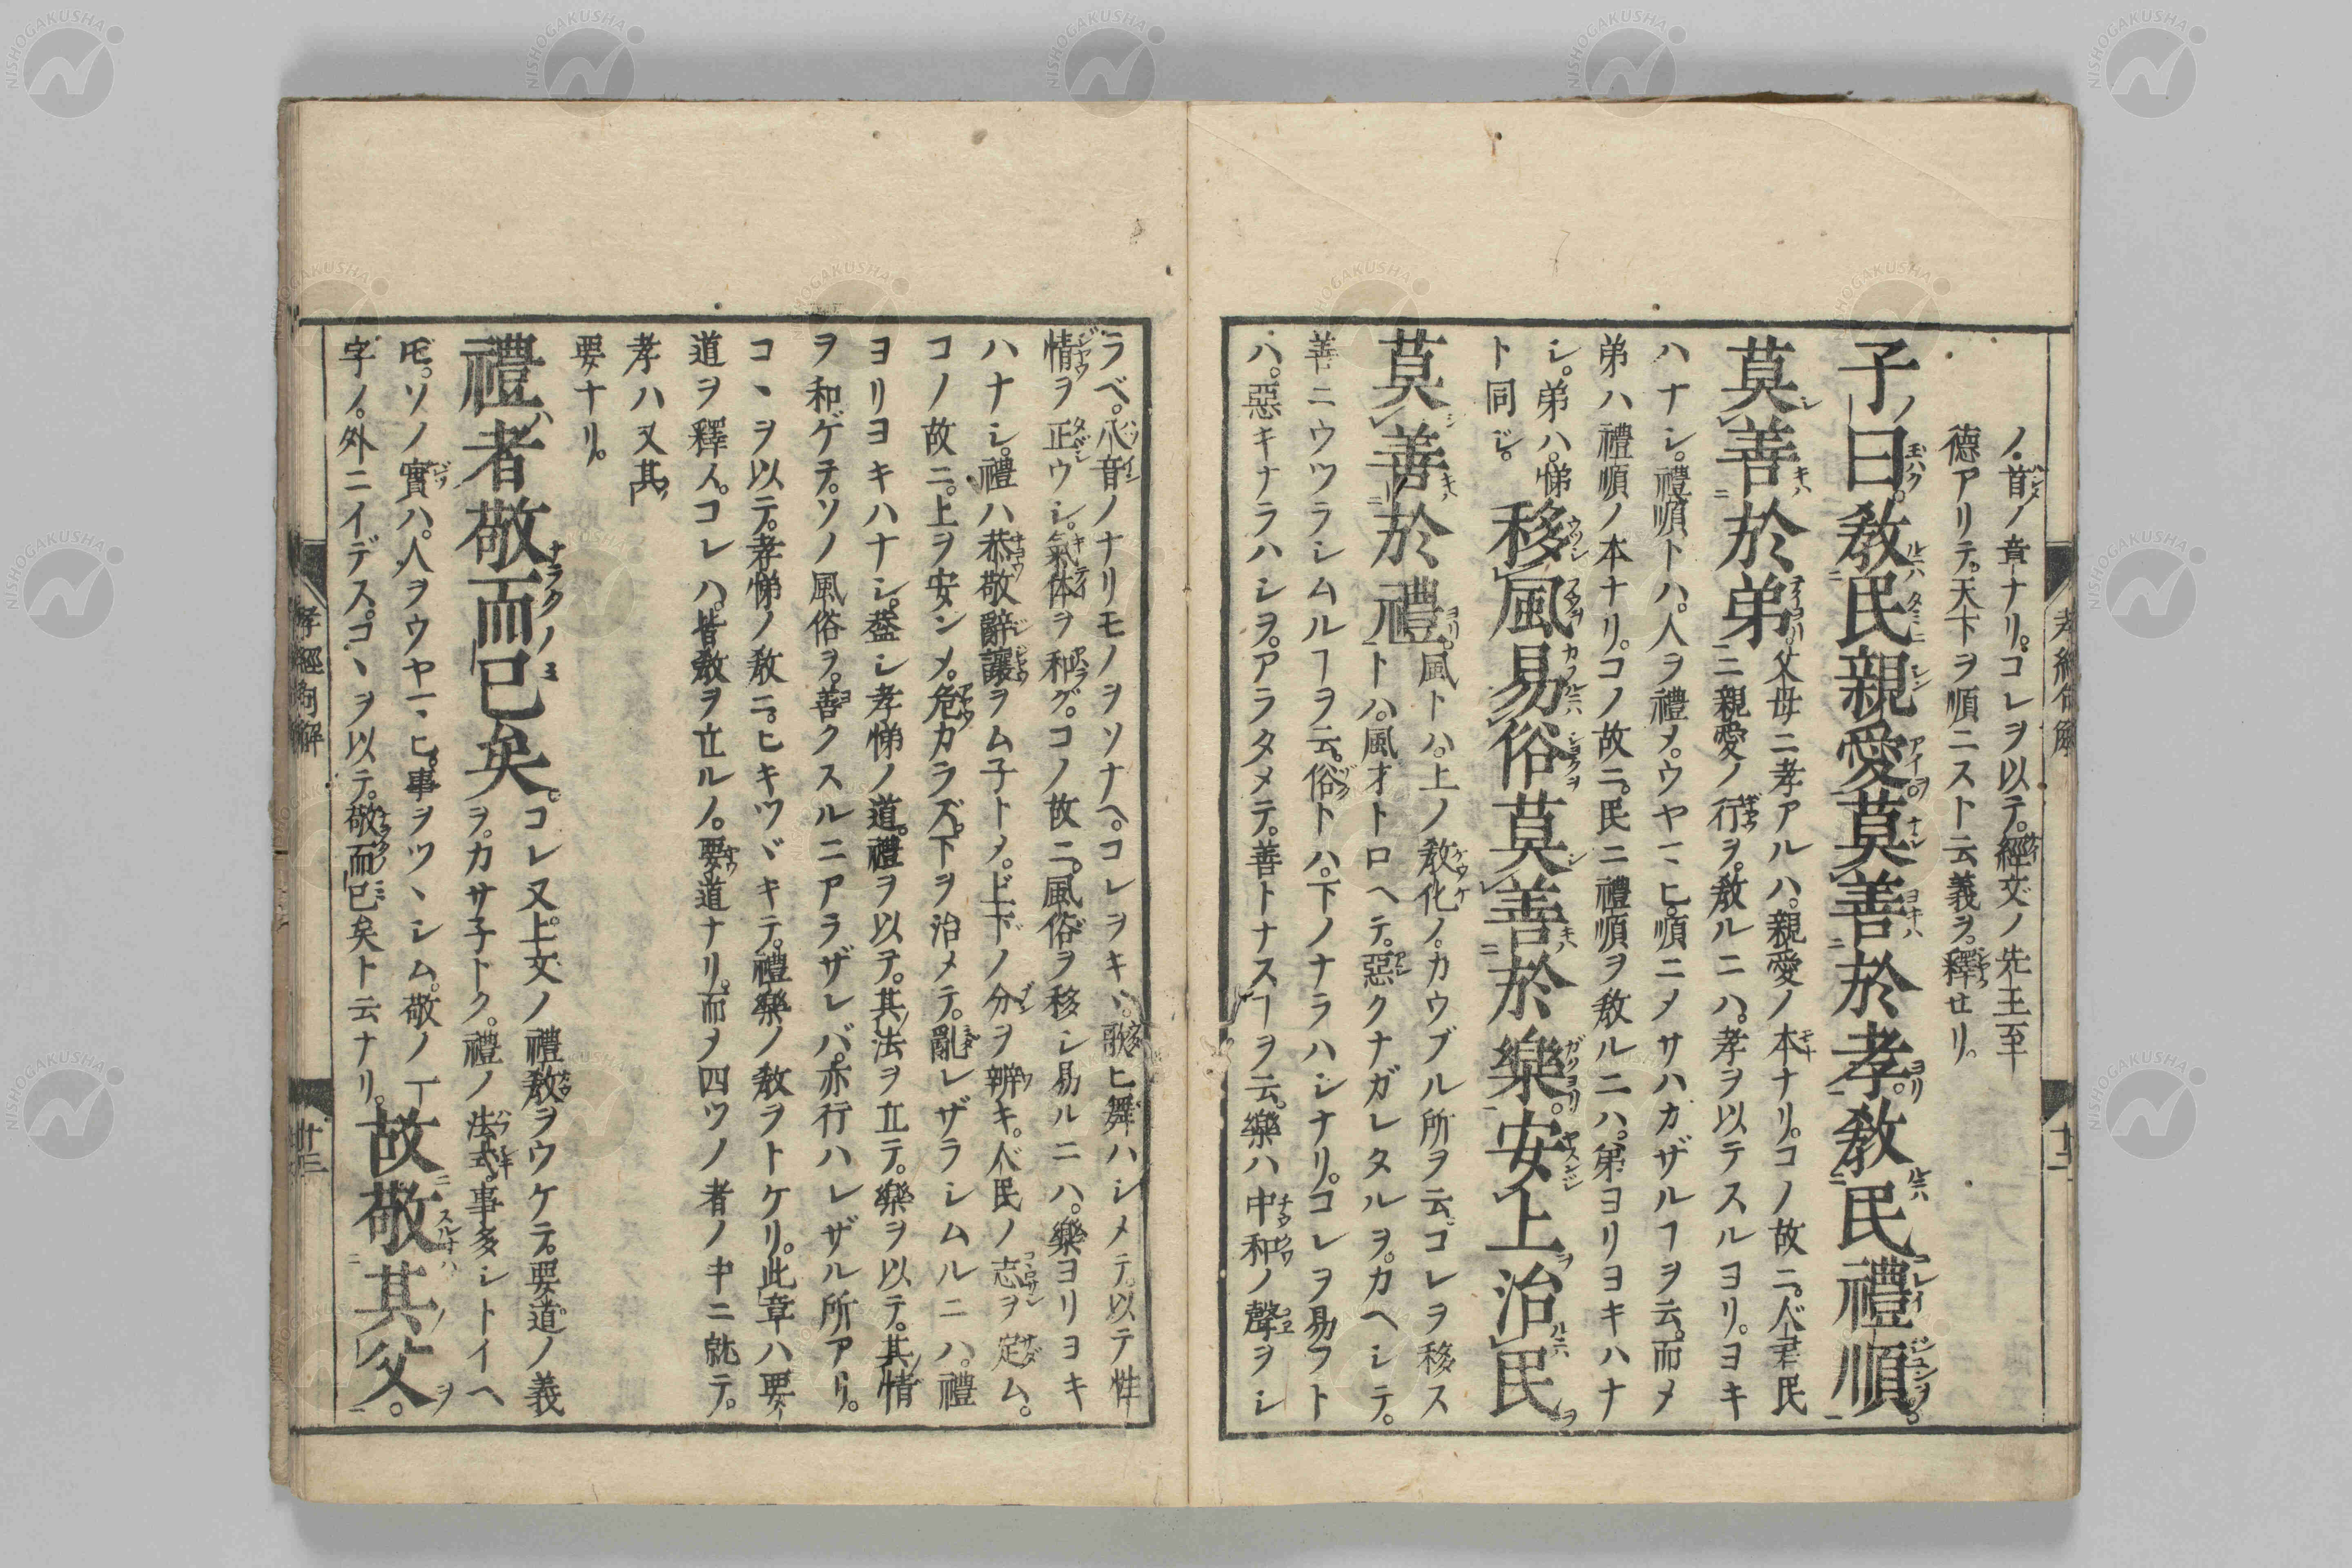 ノ首ノ章ナリ。コレヲ以テ。經文ノ先王至
德アリテ。天下ヲ順ニスト云義ヲ。釋セリ。
子曰。敎民親愛莫善於孝。敎民禮順。
莫善於弟。父母ニ孝アルハ。親愛ノ本ナリ。コノ故ニ。人君民
ニ親愛ノ行ヲ。敎ルニハ。孝ヲ以テスルヨリ。ヨキ
ハナシ。禮順トハ。人ヲ禮メ。ウヤヽヒ。順ニメサハカザルヿヲ云。而メ
弟ハ禮順ノ本ナリ。コノ故ニ。民ニ禮順ヲ敎ルニハ。弟ヨリヨキハナ
シ。弟ハ。悌
ト同ジ。
移風易俗莫善於樂。安上治民
莫善於禮。風トハ。上ノ敎化ノ。カウブル所ヲ云。コレヲ移ス
トハ。風オトロヘテ。惡クナガレタルヲ。カヘシテ。
善ニウツラシムルヿヲ云。俗トハ。下ノナラハシナリ。コレヲ易フト
ハ。惡キナラハシヲ。アラタメテ。善トナスヿヲ云。樂ハ中和ノ聲ヲシ
ラベ。八音ノナリモノヲソナヘ。コレヲキヽ。歌ヒ舞ハシメテ。以テ性
情ヲ正ウシ。氣体ヲ和グ。コノ故ニ。風俗ヲ移シ易ルニハ。樂ヨリヨキ
ハナシ。禮ハ恭敬辭讓ヲム子トメ。上下ノ分ヲ辨キ。人民ノ志ヲ定ム。
コノ故ニ。上ヲ安ンメ。危カラズ。下ヲ治メテ。亂レザラシムルニハ。禮
ヨリヨキハナシ。蓋シ孝悌ノ道。禮ヲ以テ。其法ヲ立テ。樂ヲ以テ。其情
ヲ和ゲテ。ソノ風俗ヲ。善クスルニアラザレバ。亦行ハレザル所アリ。
コヽヲ以テ。孝悌ノ敎ニ。ヒキツヾキテ。禮樂ノ敎ヲトケリ。此章ハ要
道ヲ釋ス。コレハ。皆敎ヲ立ルノ。要道ナリ。而メ四ツノ者ノ中ニ就テ。
孝ハ又其
要ナリ。
禮者敬而已矣。コレ又。上文ノ禮敎ヲウケテ。要道ノ義
ヲ。カサ子トク。禮ノ法式。事多シトイヘ
𪜈。ソノ實ハ。人ヲウヤヽヒ。事ヲツヽシム。敬ノ一
字ノ。外ニイデス。コヽヲ以テ。敬而已矣ト云ナリ。故敬其父。
孝經句解
十三